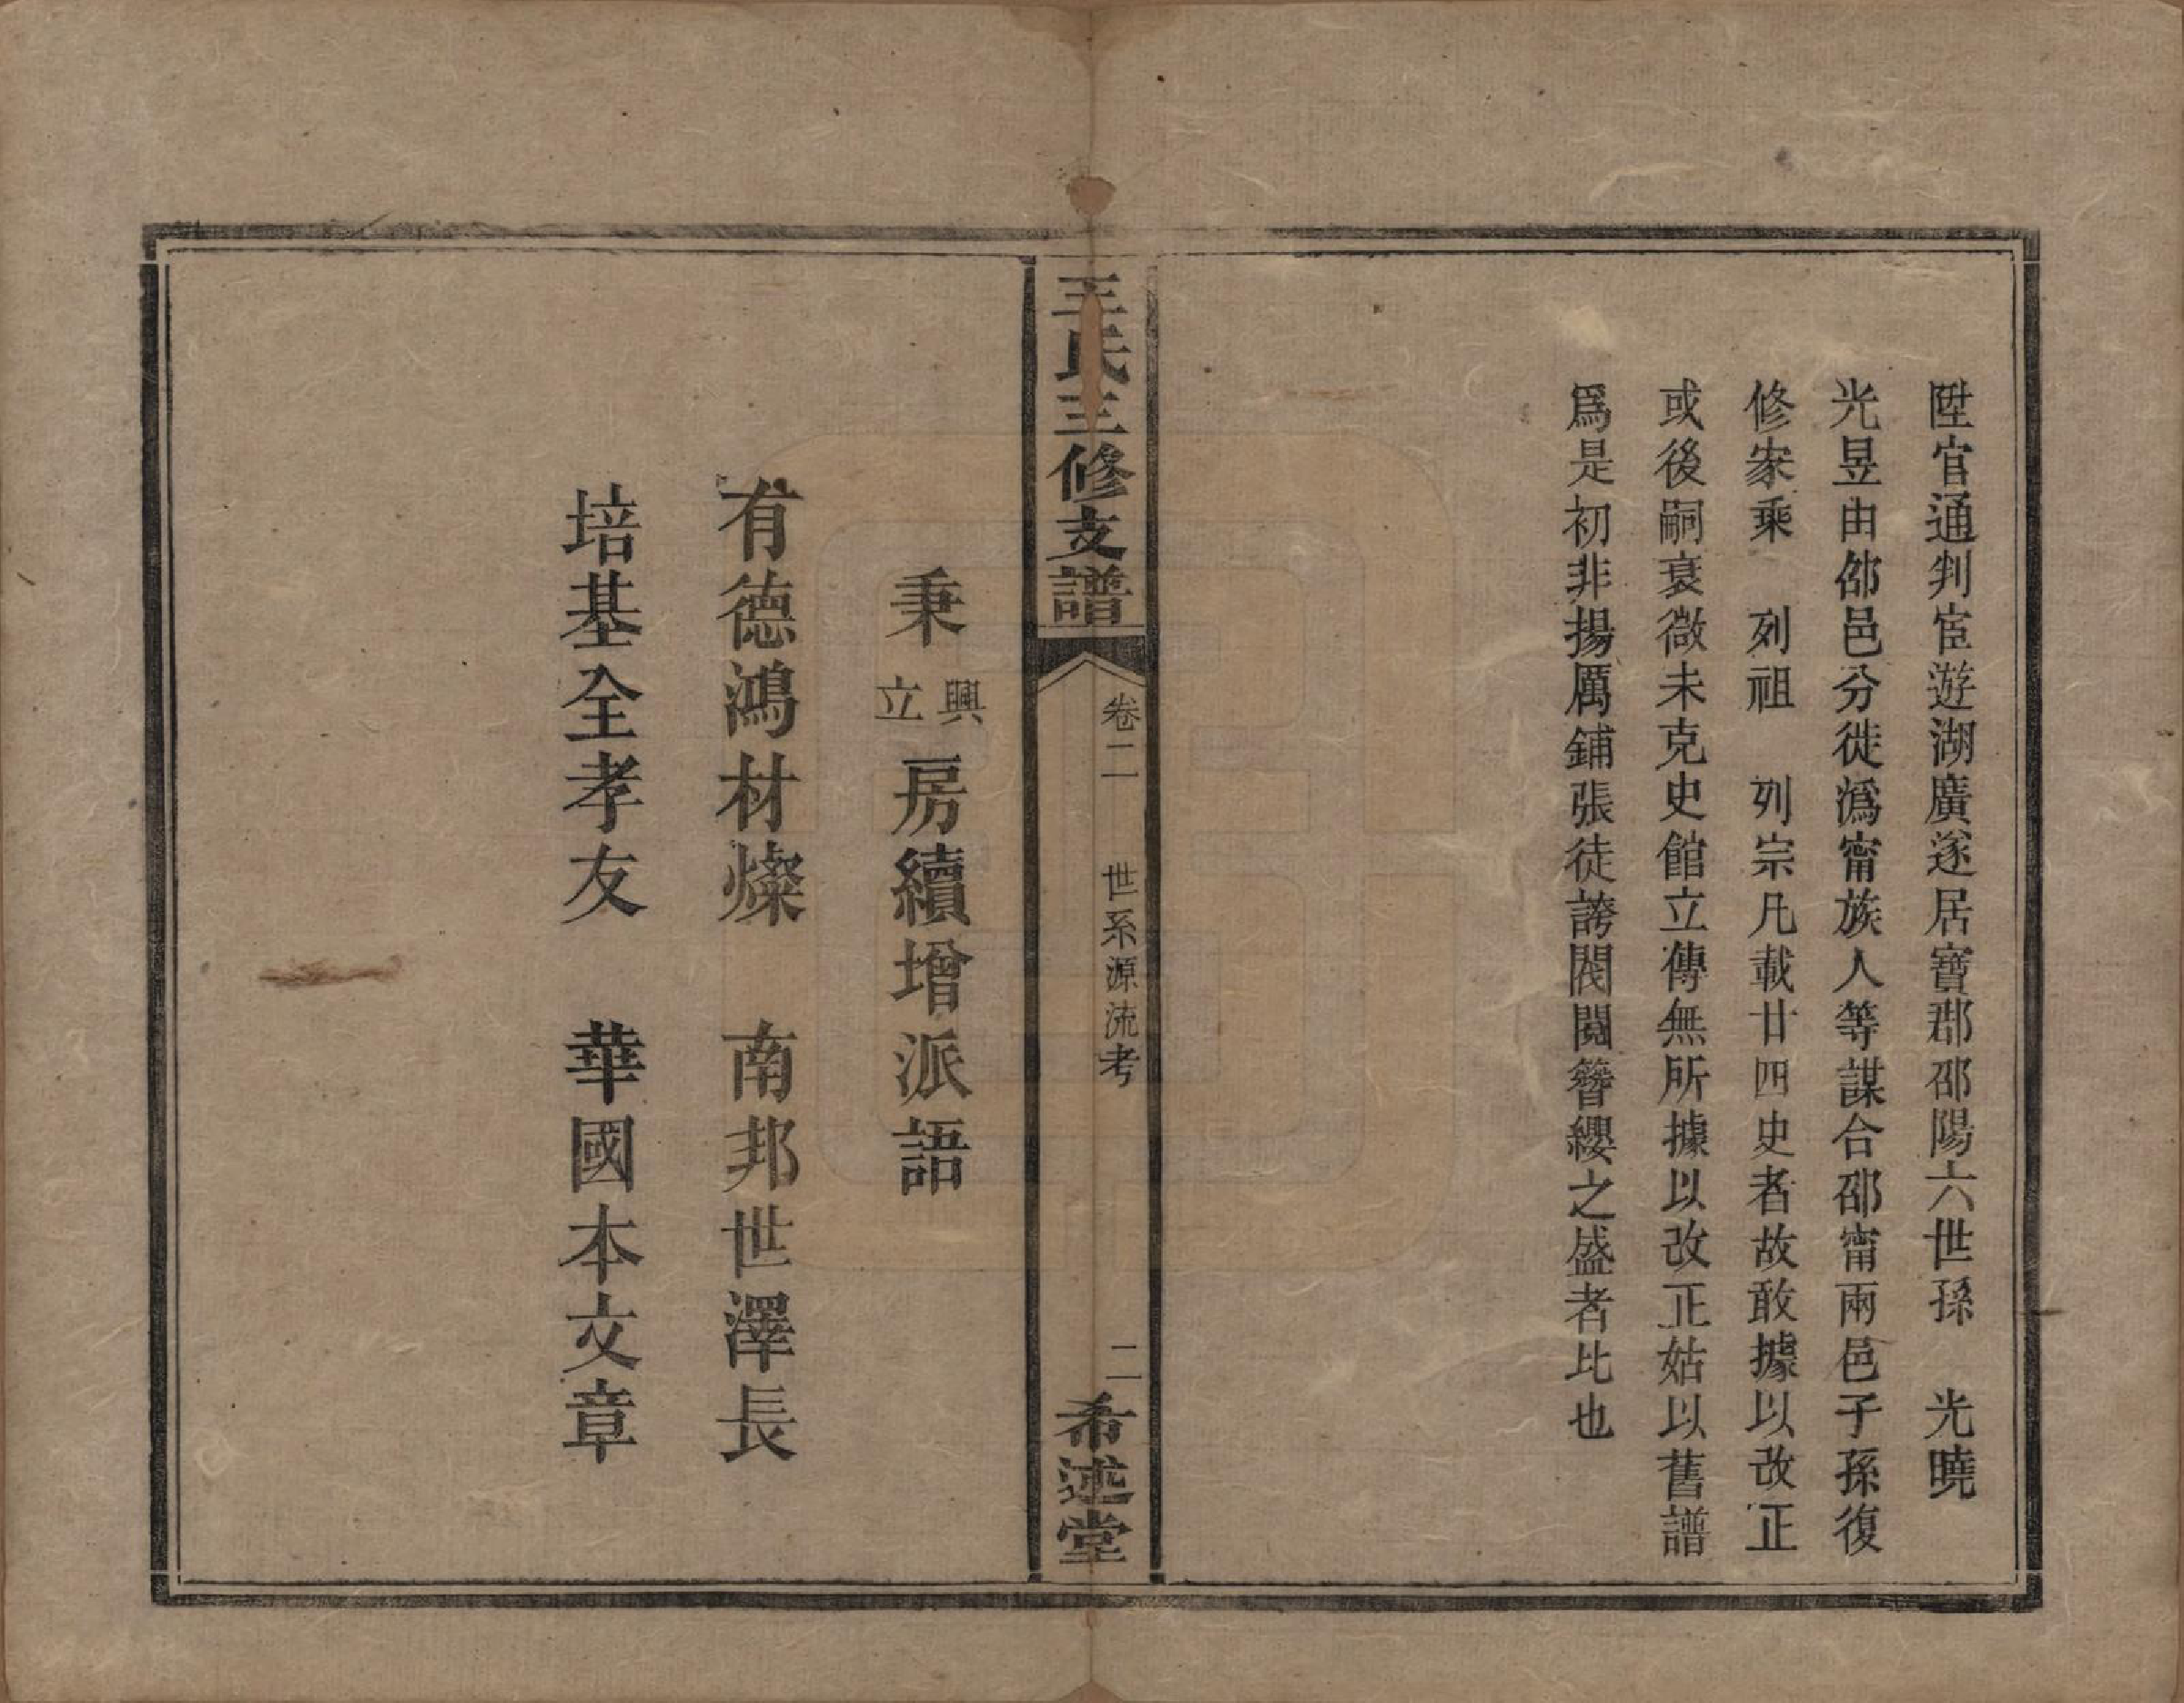 陞官通判宦遊湖廣遂居寶郡邵陽六世孫　光曉
光昱由邵邑分徙潙甯族人等謀合邵甯兩邑子孫復
修家乘　列祖　列宗凡載廿四史者故敢據以改正
或後嗣衰微未克史館立傳無所據以改正姑以舊譜
爲是初非揚厲鋪張徒誇閥閱簪纓之盛者比也
王氏三修支譜
卷二　世系源流考　二
希述堂
秉興立房續增派語
有德鴻材燦　南邦世澤長
培基全孝友　華國本文章